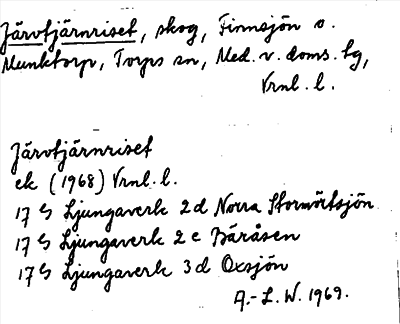 Järvtjärnriset, skog, Finnsjön o.
Munktorp, Torps sn, Med. v. doms. tg,
Vrnl. l.
Järvtjärnriset
ek (1968) Vrnl. l.
17 G Ljungaverk 2d Norra Stormörtsjön
17 G Ljungaverk 2c Bäråsen
17 G Ljungaverk 3d Oxsjön
A.-L. W. 1969.